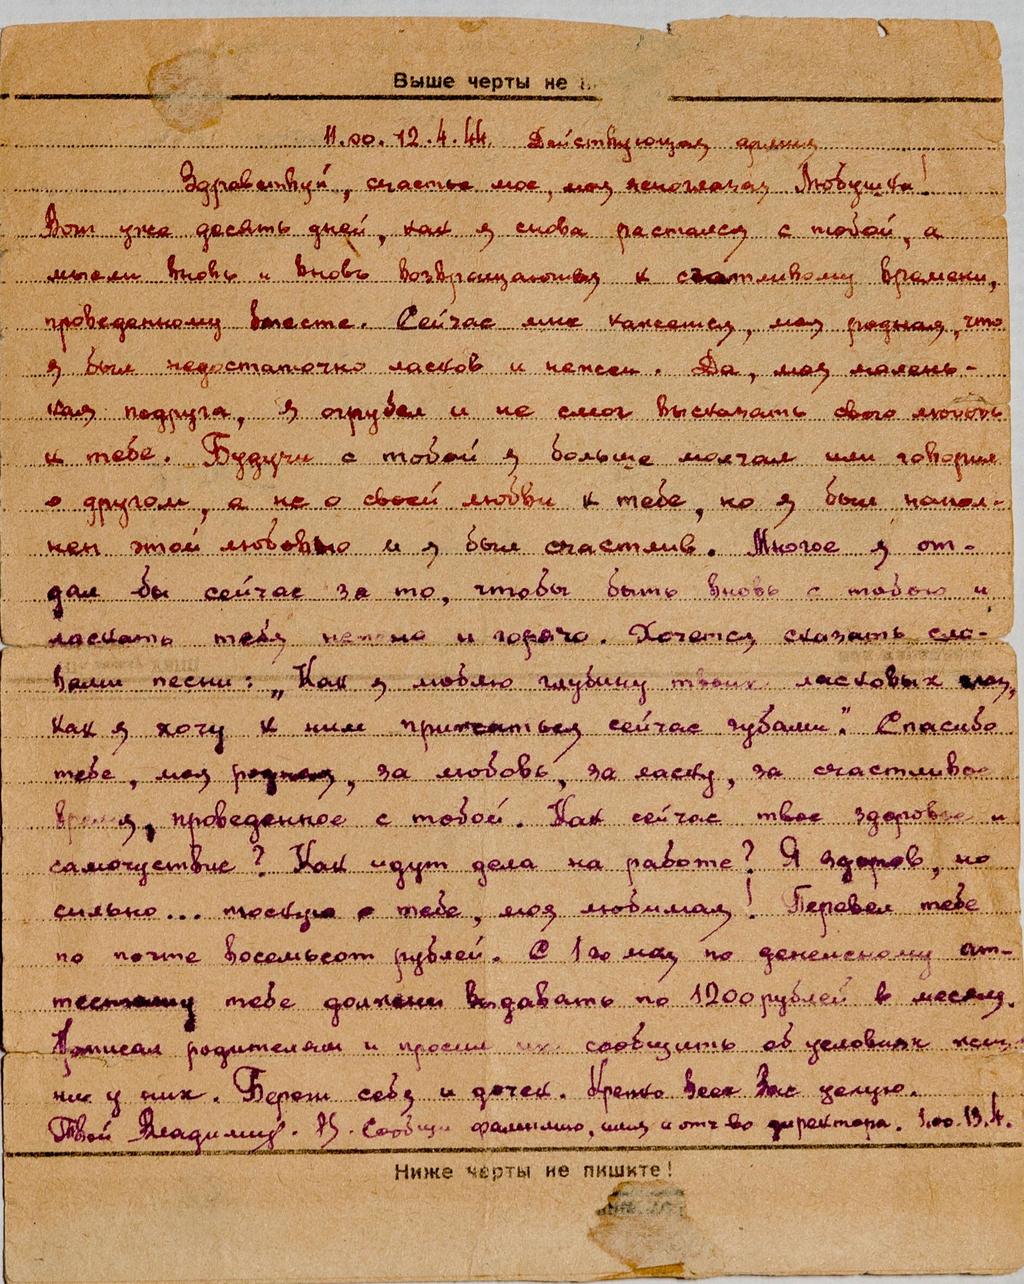 Выше черты не
11.00. 12.4.44. Действующая армия
Здравствуй, счастье мое, моя ясноглазая Любушка!
Вот уже десять дней, как я снова растался с тобой, а
мысли вновь и вновь возвращаються к счатливому времени,
проведенному вместе. Сейчас мне кажется, моя родная, что
я был недостаточно ласков и нежен. Да, моя малень-
кая подруга, я огрубел и не смог высказать свою любовь
к тебе. Будучи с тобой я больше молчал или говорил
о другом, а не о своей любви к тебе, но я был напол-
нен этой любовью и я был счастлив. Многое я от-
дал бы сейчас за то, чтобы быть вновь с тобою и
ласкать тебя нежно и горячо. Хочется сказать сло-
вами песни: „Как я люблю глубину твоих ласковых глаз,
как я хочу к ним прижаться сейчас губами". Спасибо
тебе, моя родная, за любовь, за ласку, за счастливое
время, проведенное с тобой. Как сейчас твое здоровье и
самочуствие? Как идут дела на работе? Я здоров, но
сильно... тоскую о тебе, моя любимая! Перевел тебе
по почте восемьсот рублей. С 1го мая по денежному ат-
тестату тебе должны выдавать по 1200 рублей в месяц.
Написал родителям и просил их сообщить об условиях жиз-
ни у них. Береги себя и дочек. Крепко всех Вас целую.
Твой Владимир. PS. Сообщи фамилию, имя и отч-во директора. 1.00. 13.4.
Ниже черты не пишите!